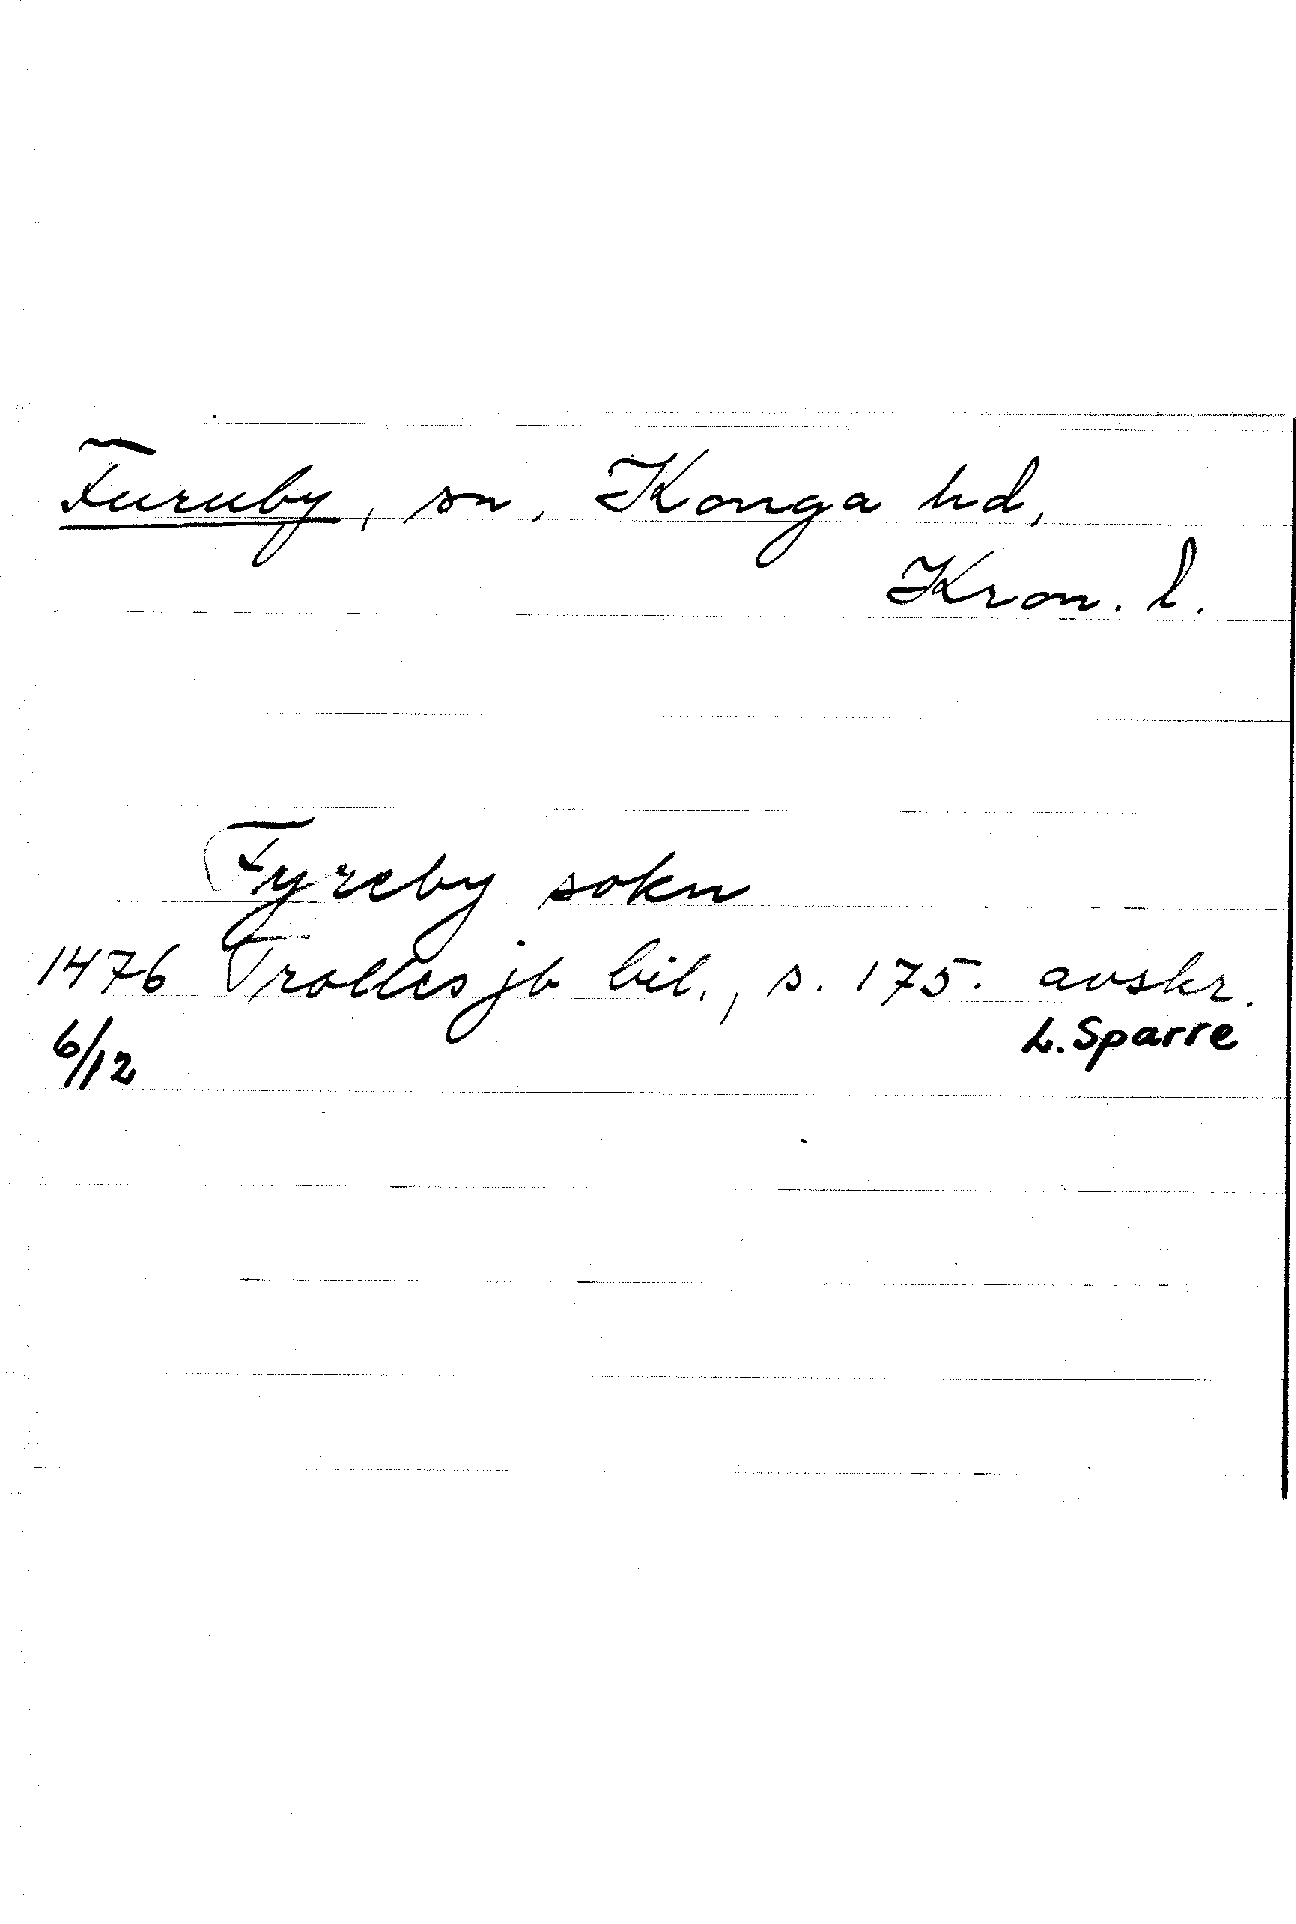 Furuby, sn, Konga hd,
Kron. l.
Fyreby sokn
1476 Trolles jb bil., s. 175. avskr.
6/12 L. Sparre